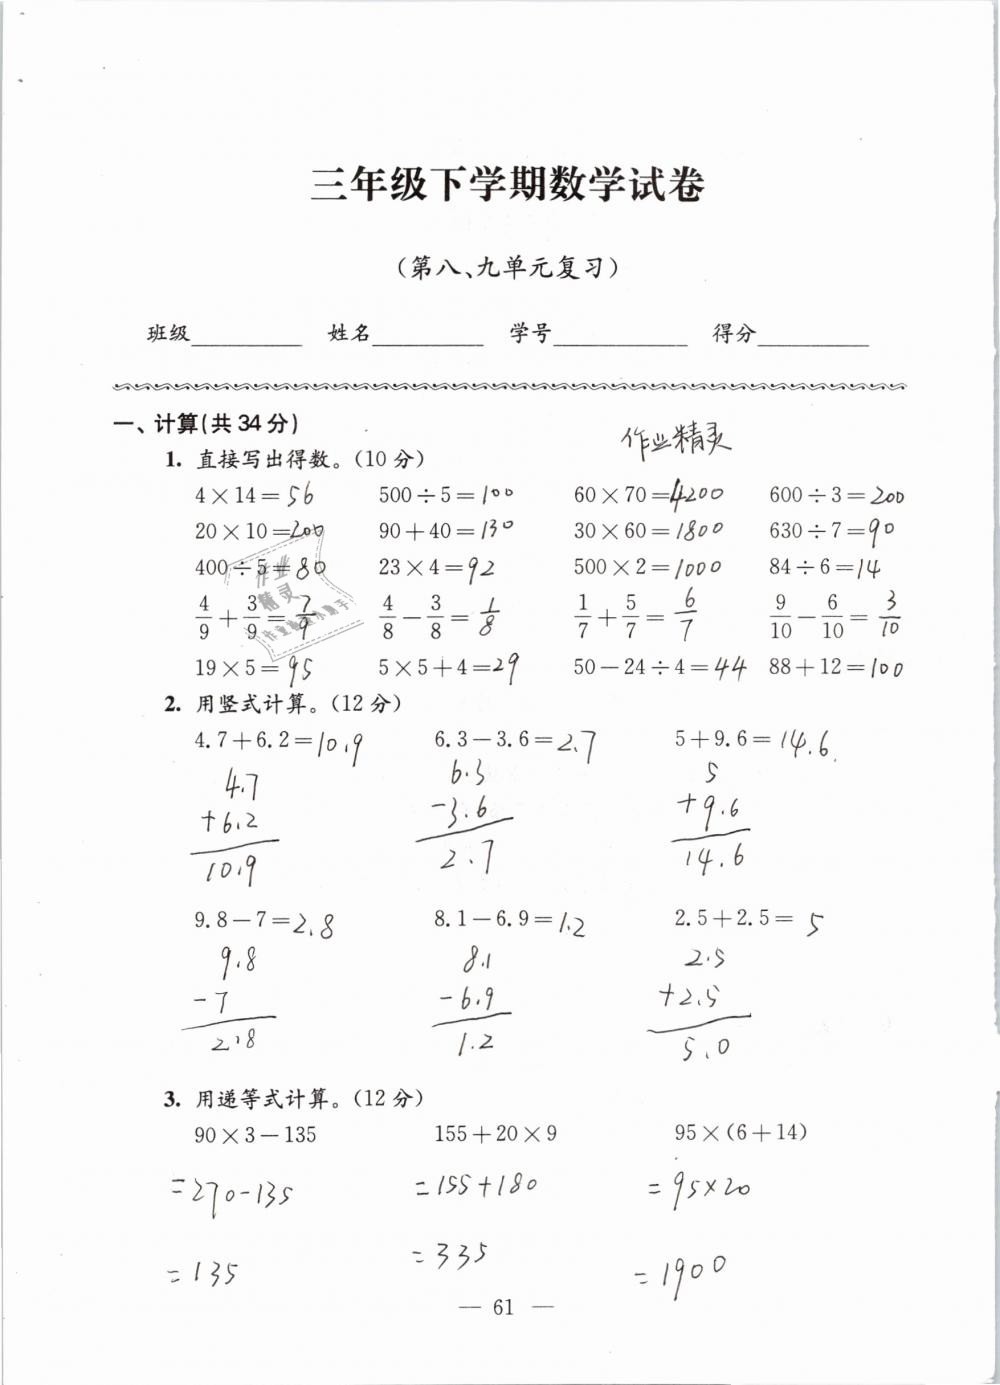 三年级下学期数学试卷
(第八、九单元复习)
班级 姓名 学号 得分
一、计算(共34分)
作业精灵
1. 直接写出得数。(10分)
4×14=56 500÷5=100 60×70=4200 600÷3=200
20×10=200 90+40=130 30×60=1800 630÷7=90
400÷5=80 23×4=92 500×2=1000 84÷6=14
4/9+3/9=7/9 4/8-3/8=1/8 1/7+5/7=6/7 9/10-6/10=3/10
19×5=95 5×5+4=29 50-24÷4=44 88+12=100
作业
精灵
2. 用竖式计算。(12分)
4.7+6.2=10.9 6.3-3.6=2.7 5+9.6=14.6
4.7 6.3 5
+6.2 -3.6 +9.6
10.9 2.7 14.6
9.8-7=2.8 8.1-6.9=1.2 2.5+2.5=5
9.8 8.1 2.5
-7 -6.9 +2.5
2.8 1.2 5.0
3. 用递等式计算。(12分)
90×3-135 155+20×9 95×(6+14)
=270-135 =155+180 =95×20
=135 =335 =1900
— 61 —